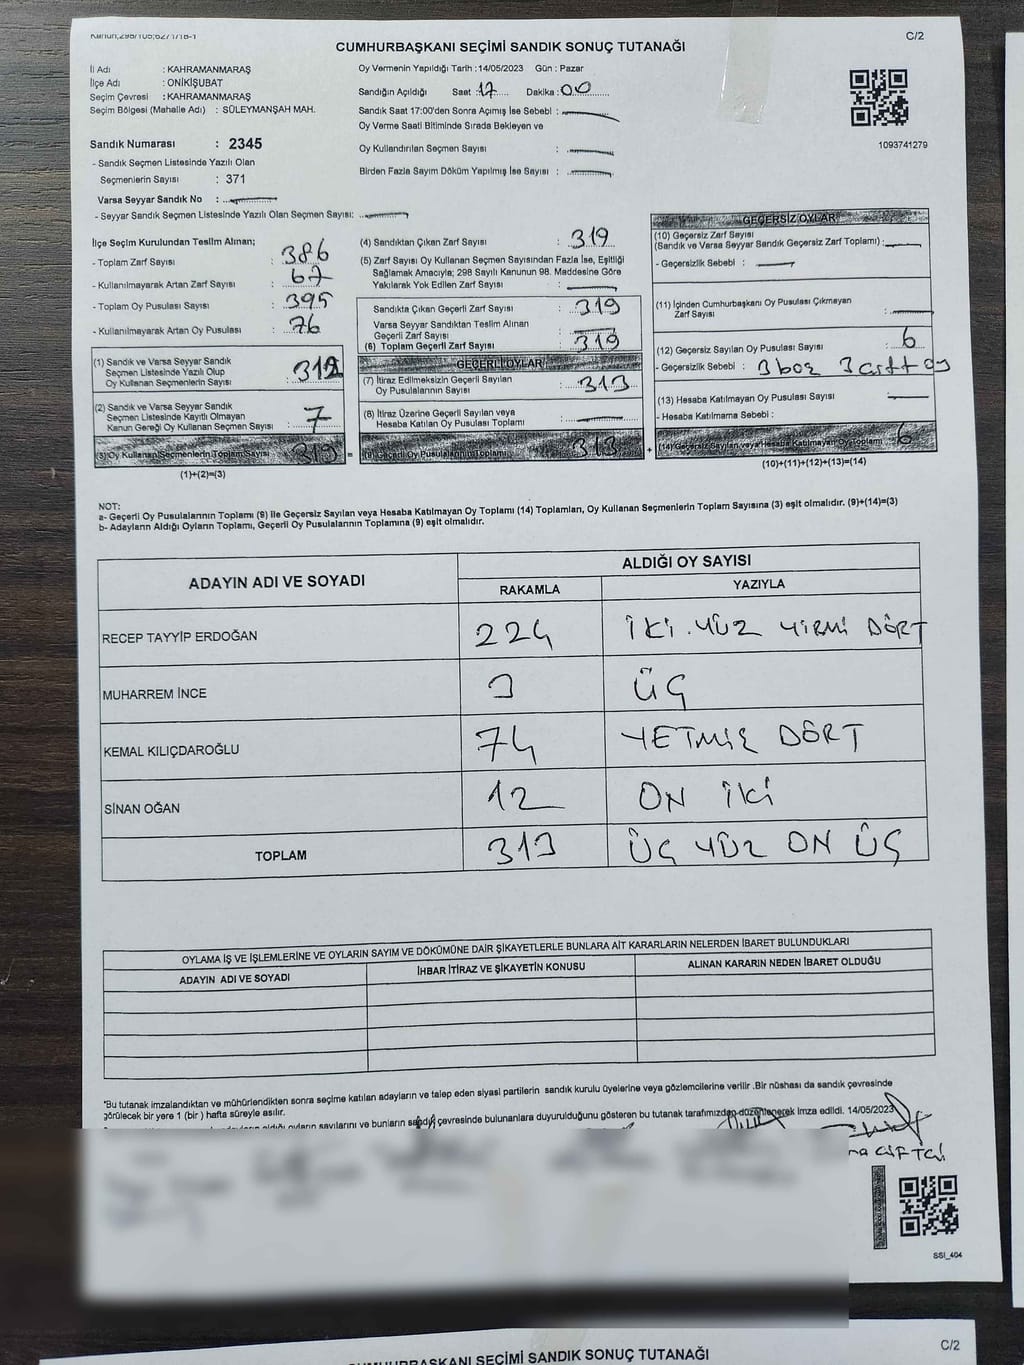 C/2
CUMHURBAŞKANI SEÇİMİ SANDIK SONUÇ TUTANAĞI
İl Adı : KAHRAMANMARAŞ
İlçe Adı : ONİKİŞUBAT
Seçim Çevresi : KAHRAMANMARAŞ
Seçim Bölgesi (Mahalle Adı) : SÜLEYMANŞAH MAH.
Sandık Numarası : 2345
- Sandık Seçmen Listesinde Yazılı Olan
Seçmenlerin Sayısı : 371
Varsa Seyyar Sandık No :
- Seyyar Sandık Seçmen Listesinde Yazılı Olan Seçmen Sayısı:
Oy Vermenin Yapıldığı Tarih : 14/05/2023 Gün : Pazar
Sandığın Açıldığı Saat : 17 Dakika : 00
Sandık Saat 17:00'den Sonra Açımış İse Sebebi :
Oy Verme Saati Bitiminde Sırada Bekleyen ve
Oy Kullandırılan Seçmen Sayısı :
Birden Fazla Sayım Döküm Yapılmış İse Sayısı :
1093741279
İlçe Seçim Kurulundan Teslim Alınan;
- Toplam Zarf Sayısı : 386
- Kullanılmayarak Artan Zarf Sayısı : 67
- Toplam Oy Pusulası Sayısı : 395
- Kullanılmayarak Artan Oy Pusulası : 76
(1) Sandık ve Varsa Seyyar Sandık
Seçmen Listesinde Yazılı Olup
Oy Kullanan Seçmenlerin Sayısı : 312
(2) Sandık ve Varsa Seyyar Sandık
Seçmen Listesinde Kayıtlı Olmayan
Kanun Gereği Oy Kullanan Seçmen Sayısı : 7
(3) Oy Kullanan Seçmenlerin Toplam Sayısı 319 =
(1)+(2)=(3)
(4) Sandıktan Çıkan Zarf Sayısı : 319
(5) Zarf Sayısı Oy Kullanan Seçmen Sayısından Fazla İse, Eşitliği
Sağlamak Amacıyla; 298 Sayılı Kanunun 98. Maddesine Göre
Yakılarak Yok Edilen Zarf Sayısı :
Sandıkta Çıkan Geçerli Zarf Sayısı : 319
Varsa Seyyar Sandıktan Teslim Alınan
Geçerli Zarf Sayısı :
(6) Toplam Geçerli Zarf Sayısı : 319
GEÇERLİ OYLAR
(7) İtiraz Edilmeksizin Geçerli Sayılan
Oy Pusulalarının Sayısı : 313
(8) İtiraz Üzerine Geçerli Sayılan veya
Hesaba Katılan Oy Pusulası Toplamı :
(9) Geçerli Oy Pusulalarının Toplamı 313 +
GEÇERSİZ OYLAR
(10) Geçersiz Zarf Sayısı
(Sandık ve Varsa Seyyar Sandık Geçersiz Zarf Toplamı) :
- Geçersizlik Sebebi :
(11) İçinden Cumhurbaşkanı Oy Pusulası Çıkmayan
Zarf Sayısı :
(12) Geçersiz Sayılan Oy Pusulası Sayısı : 6
- Geçersizlik Sebebi : 3 boş 3 çift oy
(13) Hesaba Katılmayan Oy Pusulası Sayısı
- Hesaba Katılmama Sebebi :
(14) Geçersiz Sayılan veya Hesaba Katılmayan Oy Toplamı 6
(10)+(11)+(12)+(13)=(14)
NOT:
a- Geçerli Oy Pusulalarının Toplamı (9) ile Geçersiz Sayılan veya Hesaba Katılmayan Oy Toplamı (14) Toplamları, Oy Kullanan Seçmenlerin Toplam Sayısına (3) eşit olmalıdır. (9)+(14)=(3)
b- Adayların Aldığı Oyların Toplamı, Geçerli Oy Pusulalarının Toplamına (9) eşit olmalıdır.
ADAYIN ADI VE SOYADI ALDIĞI OY SAYISI
RAKAMLA YAZIYLA
RECEP TAYYİP ERDOĞAN 224 İKİ YÜZ YİRMİ DÖRT
MUHARREM İNCE 3 ÜÇ
KEMAL KILIÇDAROĞLU 74 YETMİŞ DÖRT
SİNAN OĞAN 12 ON İKİ
TOPLAM 313 ÜÇ YÜZ ON ÜÇ
OYLAMA İŞ VE İŞLEMLERİNE VE OYLARIN SAYIM VE DÖKÜMÜNE DAİR ŞİKAYETLERLE BUNLARA AİT KARARLARIN NELERDEN İBARET BULUNDUKLARI
ADAYIN ADI VE SOYADI İHBAR İTİRAZ VE ŞİKAYETİN KONUSU ALINAN KARARIN NEDEN İBARET OLDUĞU
"Bu tutanak imzalandıktan ve mühürlendikten sonra seçime katılan adayların ve talep eden siyasi partilerin sandık kurulu üyelerine veya gözlemcilerine verilir .Bir nüshası da sandık çevresinde
görülecek bir yere 1 (bir ) hafta süreyle asılır.
aldığı oyların sayılarını ve bunların sandık çevresinde bulunanlara duyurulduğunu gösteren bu tutanak tarafımızdan düzenlenerek imza edildi. 14/05/2023
ÇİFTCİ
SSI_404
C/2
CUMHURBAŞKANI SEÇİMİ SANDIK SONUÇ TUTANAĞI